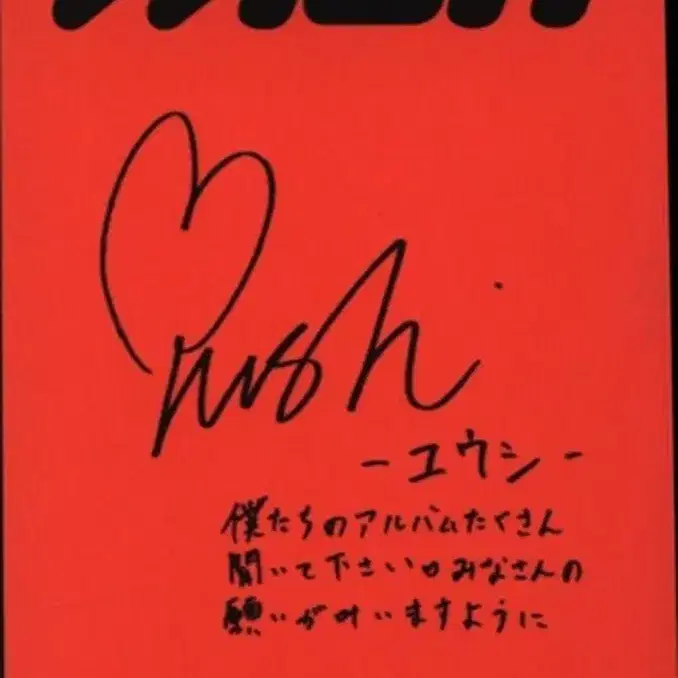 Yushi
-ユウシ-
僕たちのアルバムたくさん
聞いて下さい。みなさんの
願いが叶いますように